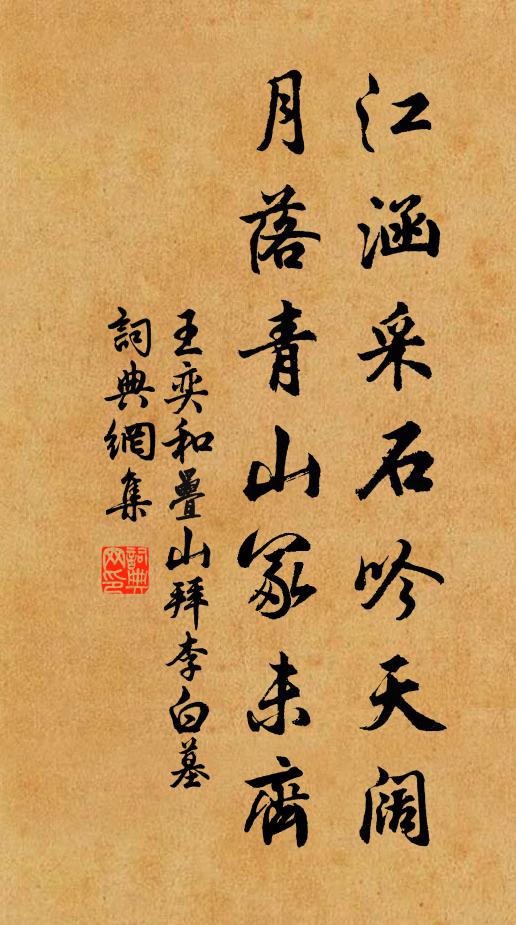 江涵采石吟天阔
月落青山冢未齊
王奕和疊山拜李白墓
詞典網集
詞典網印